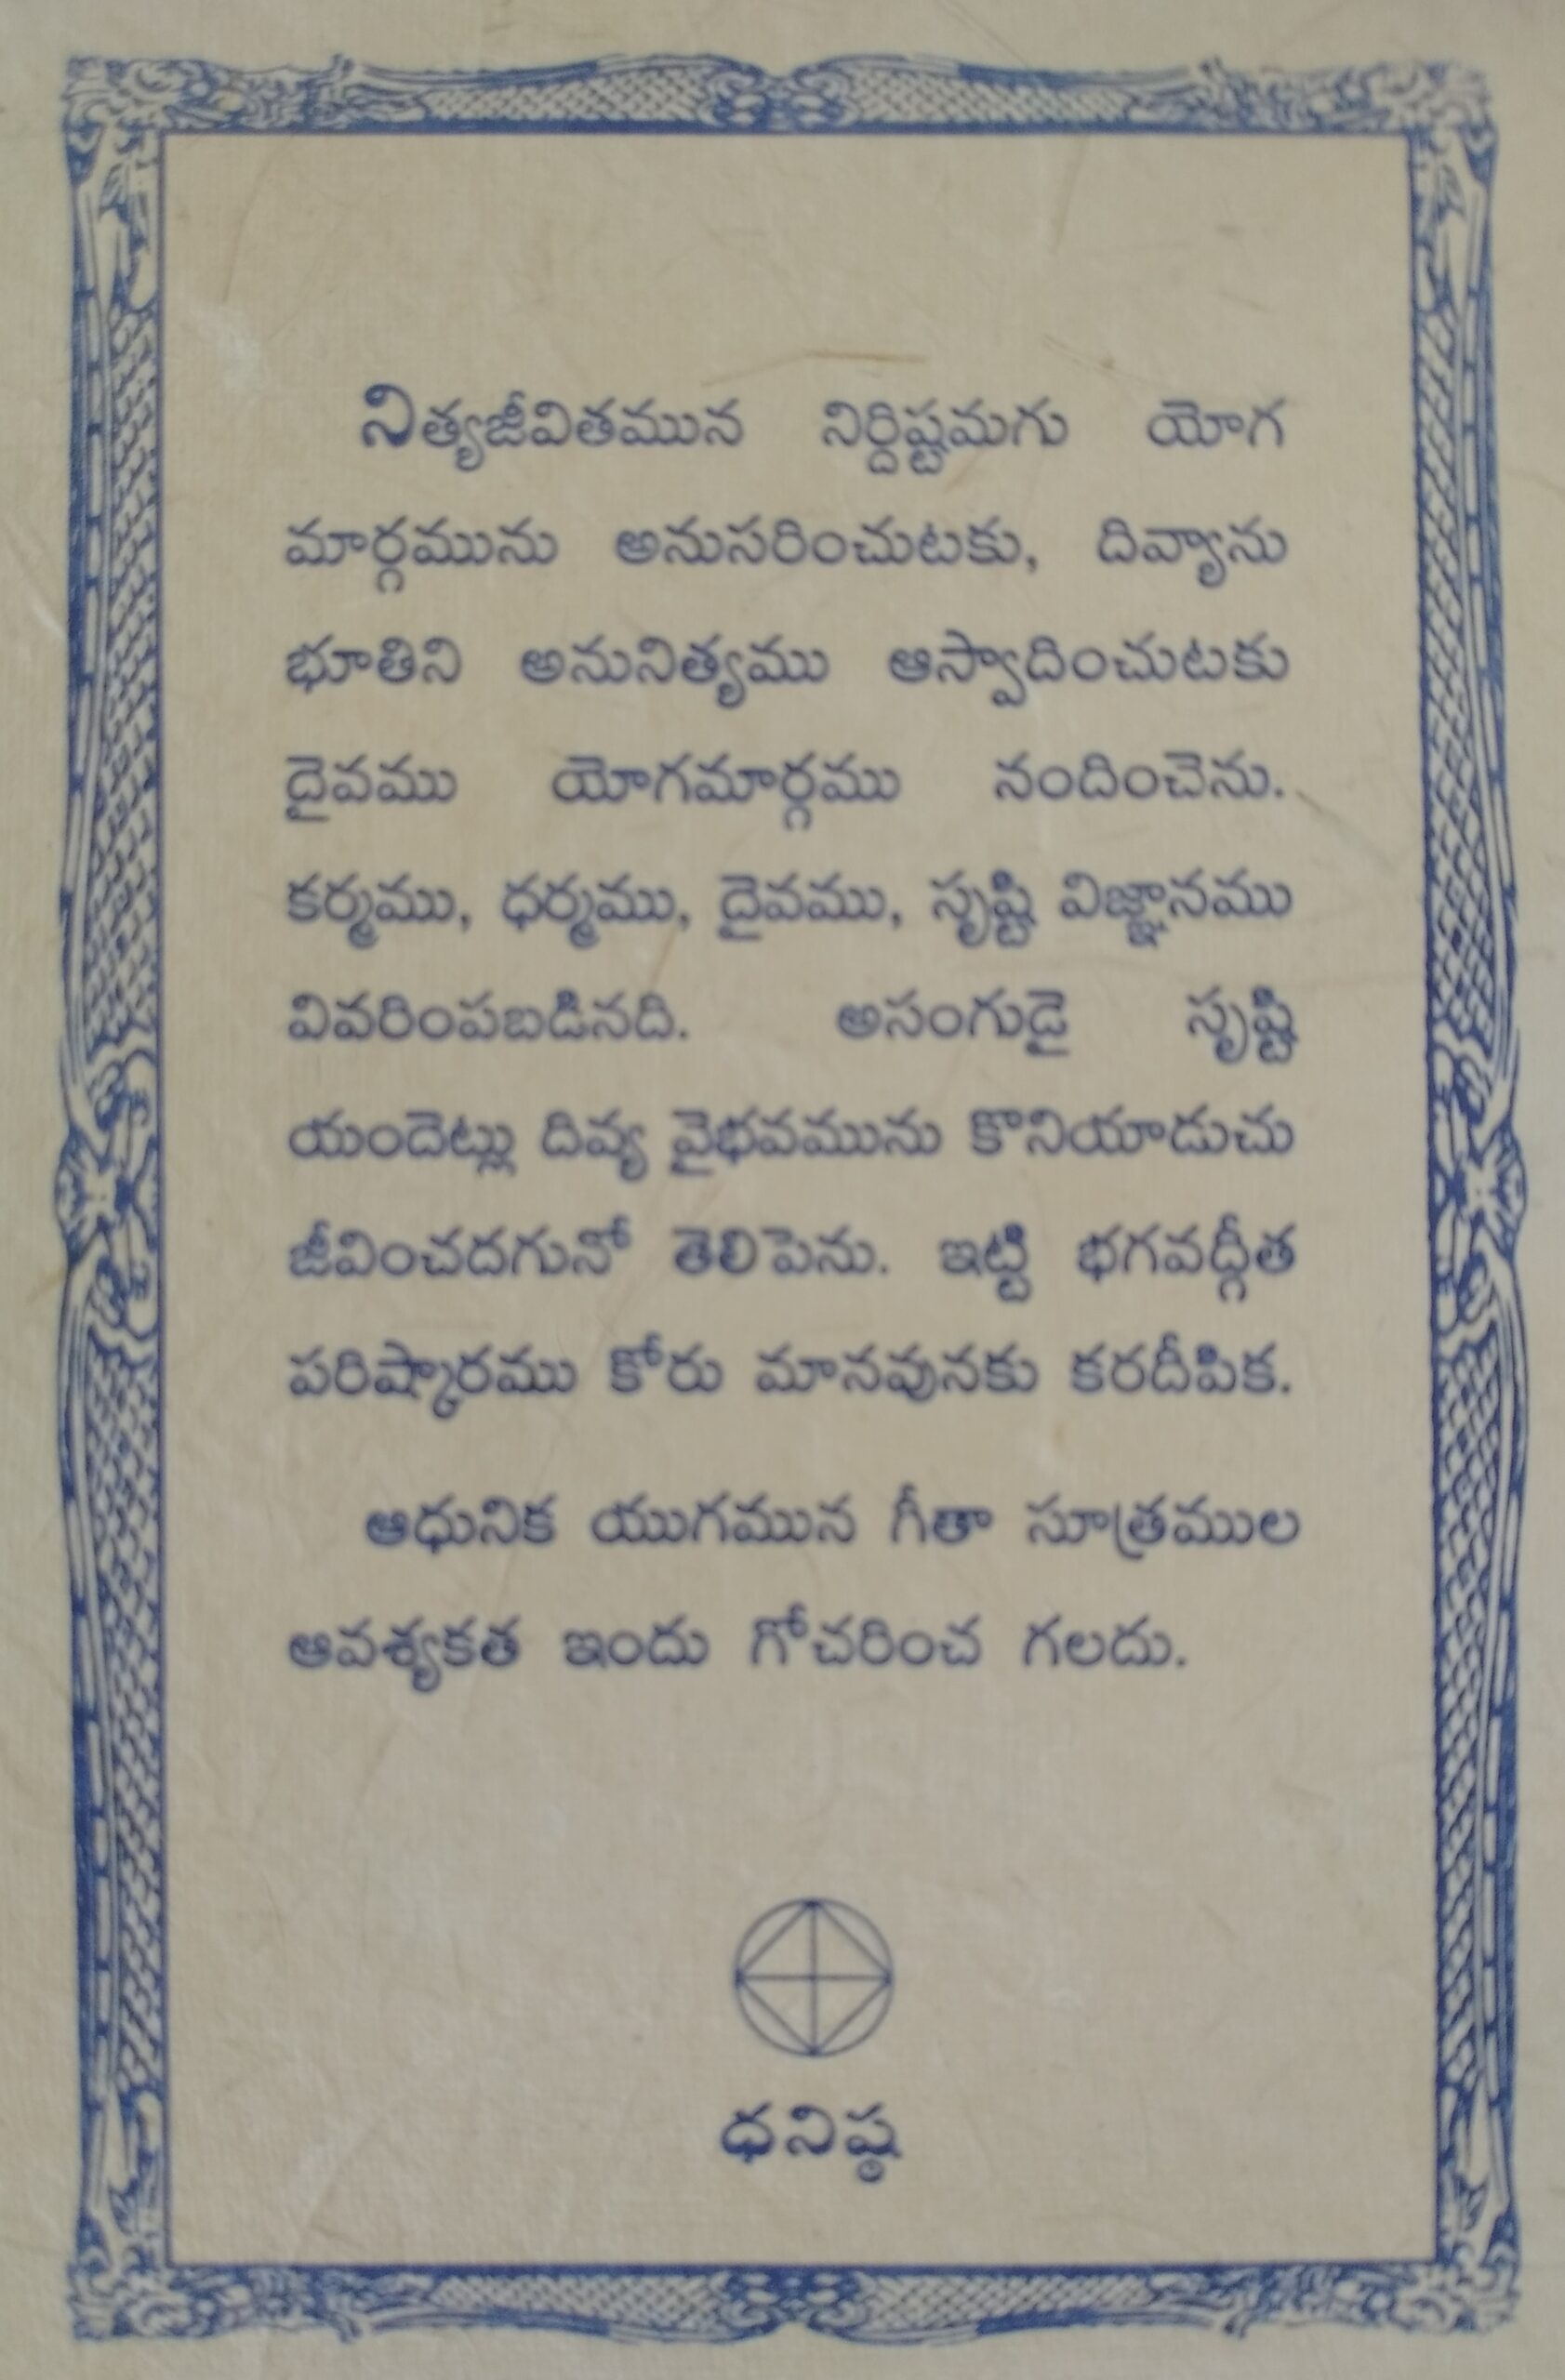 నిత్యజీవితమున నిర్దిష్టమగు యోగ
మార్గమును అనుసరించుటకు, దివ్యాను
భూతిని అనునిత్యము ఆస్వాదించుటకు
దైవము యోగమార్గము నందించెను.
కర్మము, ధర్మము, దైవము, సృష్టి విజ్ఞానము
వివరింపబడినది. అసంగుడై సృష్టి
యందెట్లు దివ్య వైభవమును కొనియాడుచు
జీవించదగునో తెలిపెను. ఇట్టి భగవద్గీత
పరిష్కారము కోరు మానవునకు కరదీపిక.
ఆధునిక యుగమున గీతా సూత్రముల
ఆవశ్యకత ఇందు గోచరించ గలదు.
ధనిష్ఠ